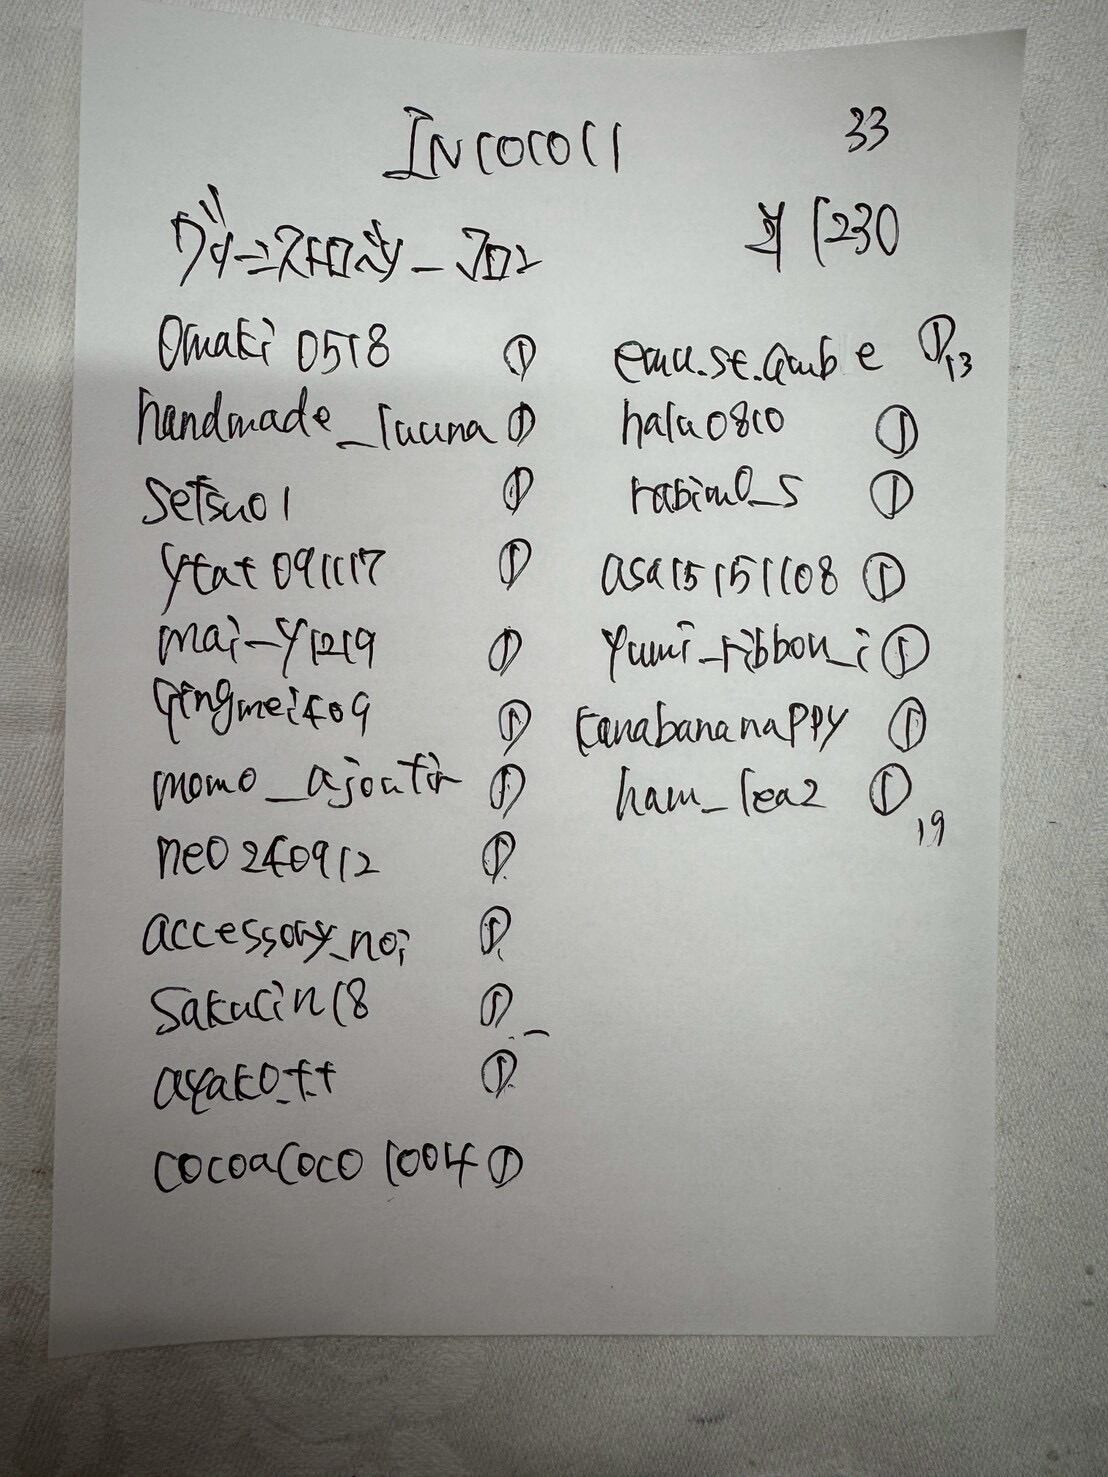 INCOCOCI
33
¥1230
omaki0518 ①
handmade_luuna ①
setsuo1 ①
ytat091117 ①
mai-y1219 ①
qingmei409 ①
momo_ajoutir ①
neo240912 ①
accessory_noi ①
sakucin18 ①
ayako.tt ①
cocoacoco1004 ①
emu.se.amb e ① 13
halu0810 ①
①
asa15151108 ①
yumi_ribbon_i ①
kanabananappy ①
ham_lea2 ① 19